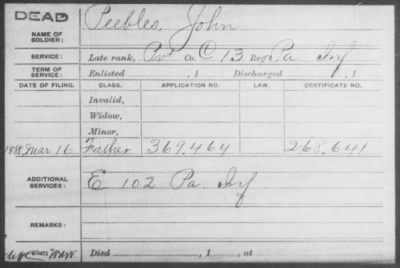 DEAD
NAME OF SOLDIER: Peebles, John
SERVICE: Late rank, Pvt Co. C 13 Reg't Pa Inf
TERM OF SERVICE: Enlisted , 1 Discharged , 1
DATE OF FILING. CLASS. APPLICATION NO. LAW. CERTIFICATE NO.
Invalid,
Widow,
Minor,
1888 Mar 16 Father 369.464 268.641
ADDITIONAL SERVICES: E 102 Pa. Inf
REMARKS:
Died , 1 , at